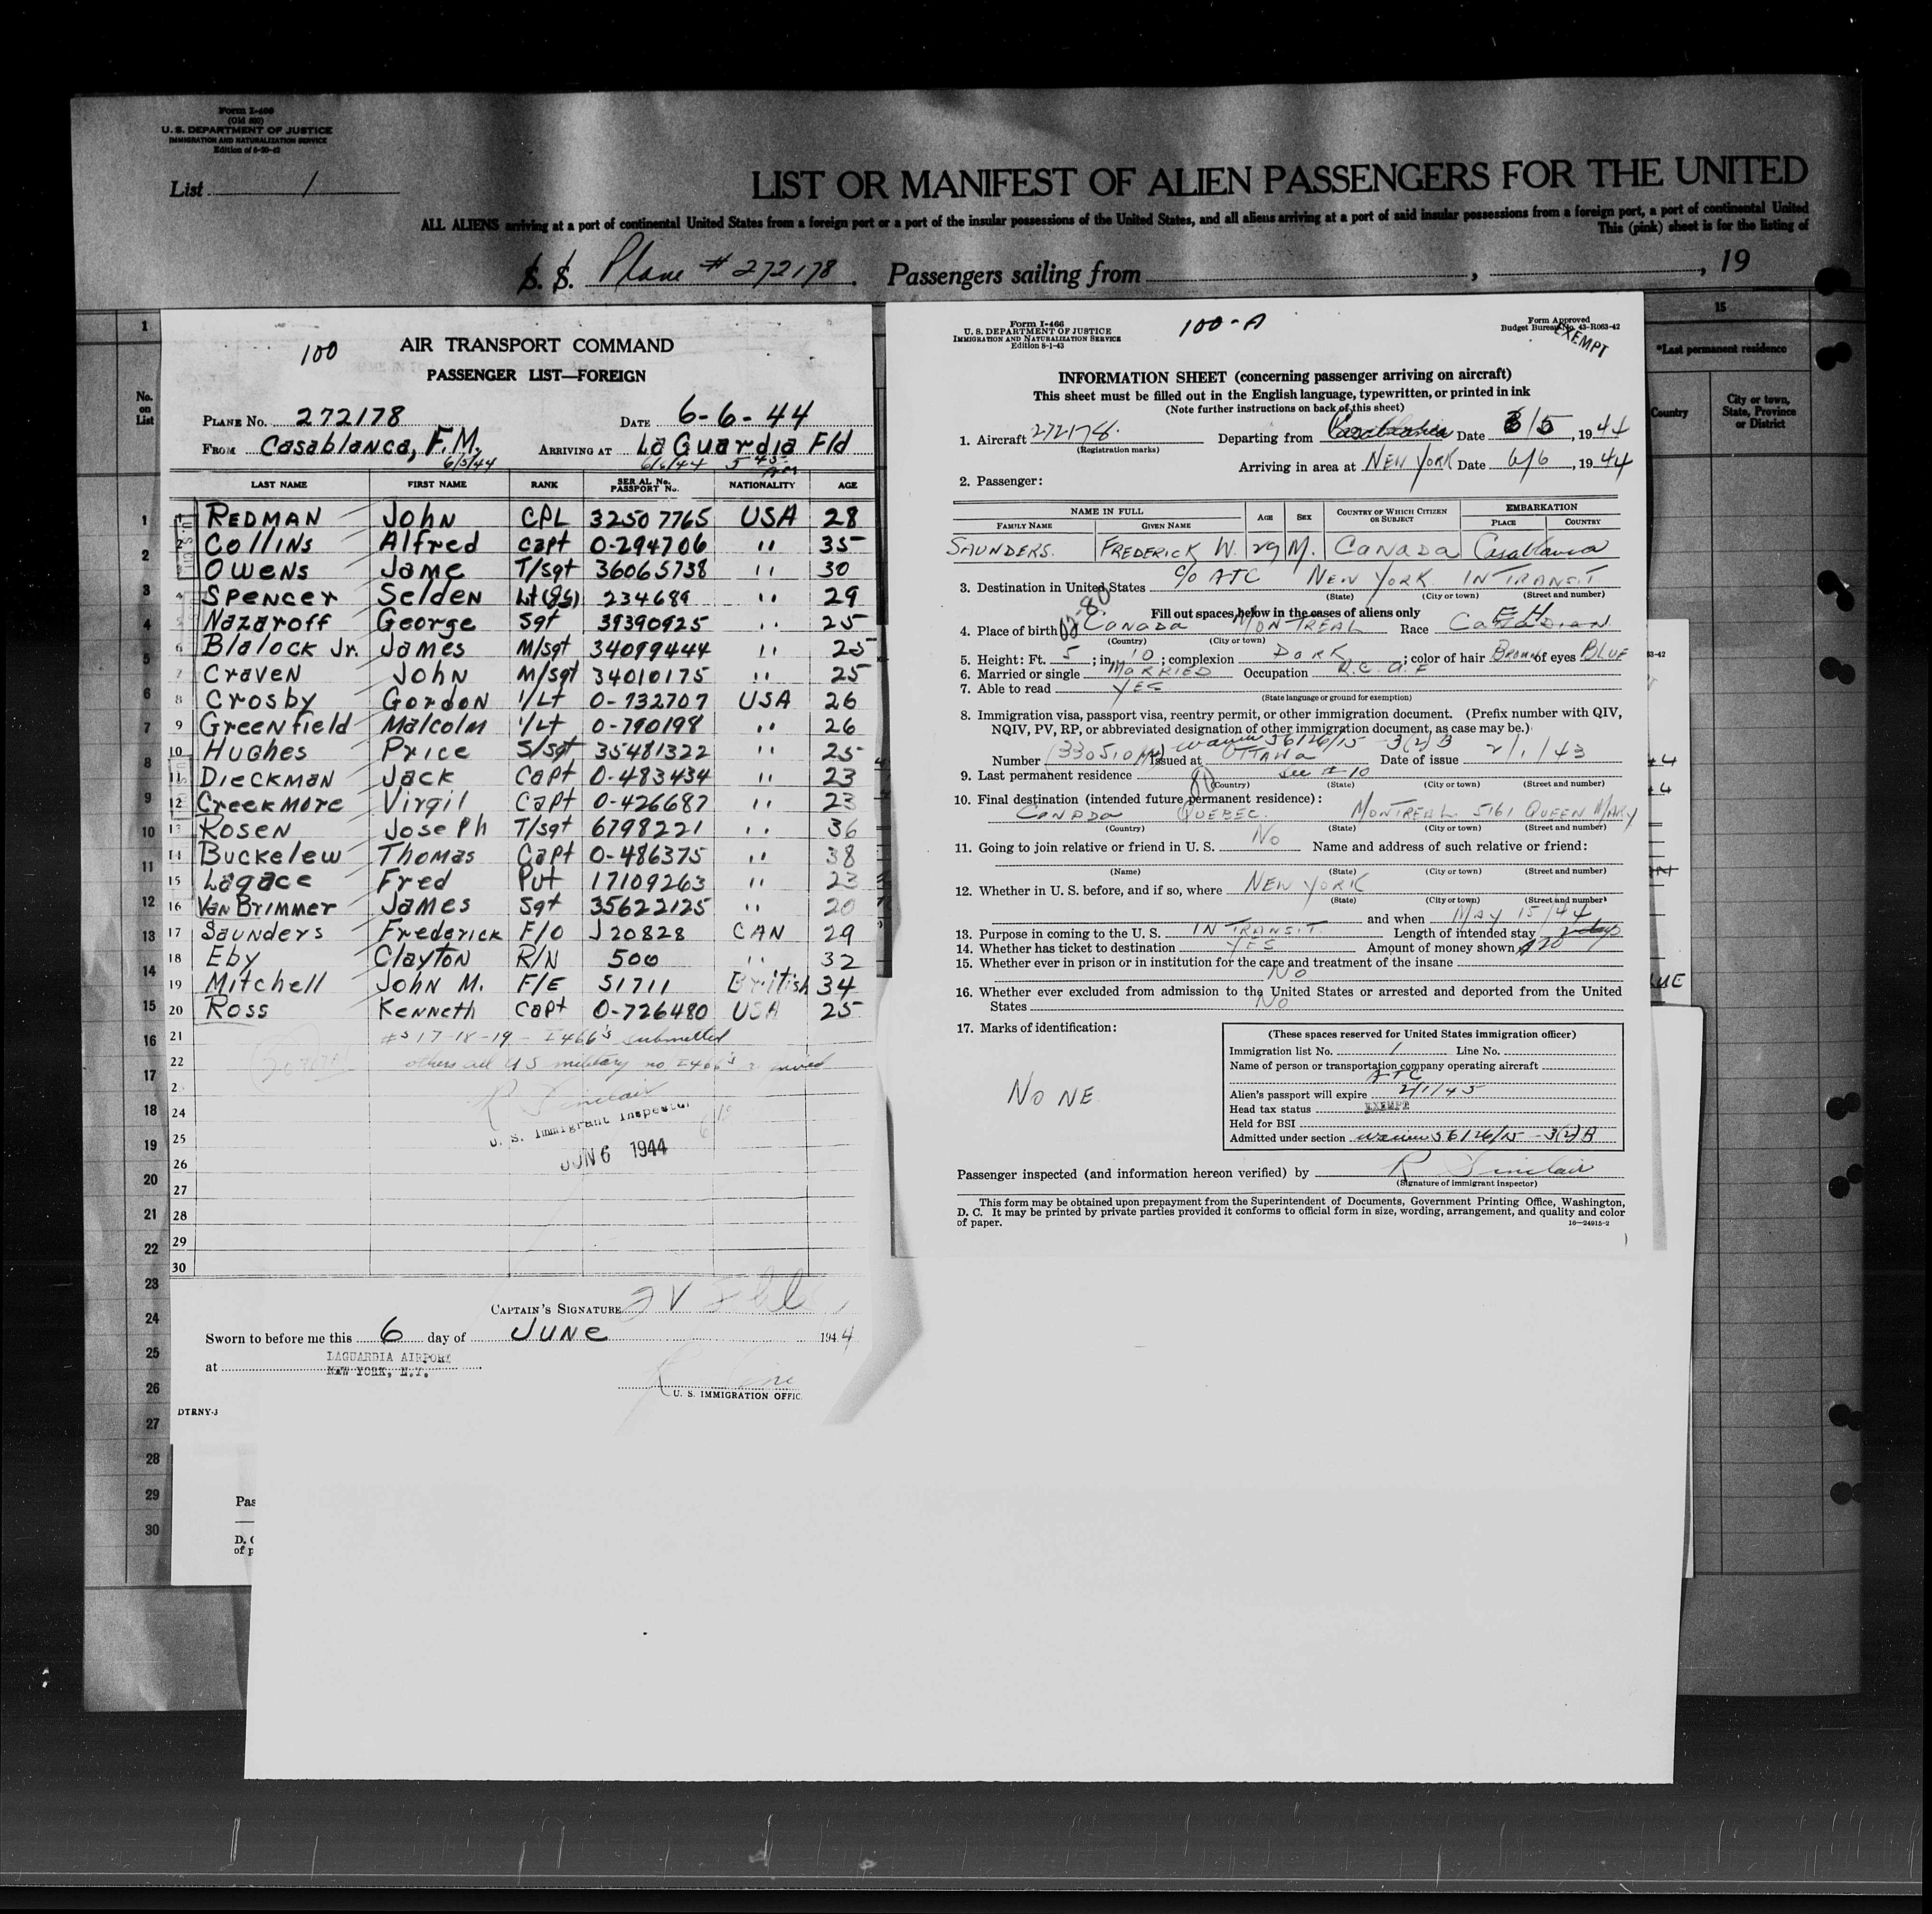 Form I-466
(Old 500)
U. S. DEPARTMENT OF JUSTICE
IMMIGRATION AND NATURALIZATION SERVICE
Edition of 6-20-42
List 1
LIST OR MANIFEST OF ALIEN PASSENGERS FOR THE UNITED
ALL ALIENS arriving at a port of continental United States from a foreign port or a port of the insular possessions of the United States, and all aliens arriving at a port of said insular possessions from a foreign port, a port of continental United
This (pink) sheet is for the listing of
S. S. Plane # 272178. Passengers sailing from , , 19
100
AIR TRANSPORT COMMAND
PASSENGER LIST—FOREIGN
PLANE NO. 272178 DATE 6-6-44
FROM Casablanca, F.M. ARRIVING AT La Guardia Fld
6/5/44 6/6/44 5 45
LAST NAME FIRST NAME RANK SERIAL No. PASSPORT No. NATIONALITY AGE
1 REDMAN John CPL 32507765 USA 28
2 Collins Alfred Capt O-294706 " 35
Owens Jame T/sgt 36065738 " 30
4 Spencer Selden Lt(jg) 234689 " 29
5 Nazaroff George Sgt 39390925 " 25
6 Blalock Jr. James M/sgt 34099444 " 25
7 Craven John M/sgt 34010175 " 25
8 Crosby Gordon 1/Lt O-732707 USA 26
9 Greenfield Malcolm 1/Lt O-790198 " 26
10 Hughes Price S/sgt 35481322 " 25
11 Dieckman Jack Capt O-483434 " 23
12 Creekmore Virgil Capt O-426687 " 23
13 Rosen Joseph T/sgt 6798221 " 36
14 Buckelew Thomas Capt O-486375 " 38
15 Lagace Fred Pvt 17109263 " 23
16 Van Brimmer James Sgt 35622125 " 20
17 Saunders Frederick F/O J20828 CAN 29
18 Eby Clayton R/N 500 " 32
19 Mitchell John M. F/E 51711 British 34
20 Ross Kenneth Capt O-726480 USA 25
21 #s 17-18-19 - I466's submitted
22 others all U S military no I466's
2
24 R Sinclair
U. S. Immigrant Inspector
25
JUN 6 1944
26
27
28
29
30
CAPTAIN'S SIGNATURE
Sworn to before me this 6 day of JUNE 1944
at LAGUARDIA AIRPORT
NEW YORK, N.Y.
U. S. IMMIGRATION OFFIC
DTRNY-3
Pas
D. C
of p
No. on List
1
2
3
4
5
6
7
8
9
10
11
12
13
14
15
16
17
18
19
20
21
22
23
24
25
26
27
28
29
30
Form I-466
U. S. DEPARTMENT OF JUSTICE
IMMIGRATION AND NATURALIZATION SERVICE
Edition 8-1-43
100-A
Form Approved
Budget Bureau No. 43-R063-42
EXEMPT
INFORMATION SHEET (concerning passenger arriving on aircraft)
This sheet must be filled out in the English language, typewritten, or printed in ink
(Note further instructions on back of this sheet)
1. Aircraft 272178. Departing from Casablanca Date 6/5, 1944
(Registration marks)
Arriving in area at NEW YORK Date 6/6, 1944
2. Passenger:
NAME IN FULL AGE SEX COUNTRY OF WHICH CITIZEN OR SUBJECT EMBARKATION
FAMILY NAME GIVEN NAME PLACE COUNTRY
SAUNDERS. FREDERICK W. 29 M. CANADA Casablanca
3. Destination in United States C/O ATC NEW YORK IN TRANSIT
(State) (City or town) (Street and number)
Fill out spaces below in the cases of aliens only
4. Place of birth CANADA MONTREAL Race CANADIAN
(Country) (City or town)
5. Height: Ft. 5; in. 10; complexion DARK; color of hair BROWN of eyes BLUE
6. Married or single MARRIED Occupation R.C.A.F
7. Able to read YES
(State language or ground for exemption)
8. Immigration visa, passport visa, reentry permit, or other immigration document. (Prefix number with QIV,
NQIV, PV, RP, or abbreviated designation of other immigration document, as case may be.)
waiver 56126/15 -3(2) B
Number Issued at OTTAWA Date of issue 2/1/43
9. Last permanent residence see # 10
(Country) (State) (City or town) (Street and number)
10. Final destination (intended future permanent residence):
CANADA QUEBEC. MONTREAL 5161 QUEEN MARY
(Country) (State) (City or town) (Street and number)
11. Going to join relative or friend in U. S. No Name and address of such relative or friend:
(Name) (State) (City or town) (Street and number)
12. Whether in U. S. before, and if so, where NEW YORK
(State) (City or town) (Street and number)
and when MAY 15/44
13. Purpose in coming to the U. S. IN TRANSIT. Length of intended stay 2 days
14. Whether has ticket to destination YES Amount of money shown $20
15. Whether ever in prison or in institution for the care and treatment of the insane
No
16. Whether ever excluded from admission to the United States or arrested and deported from the United
States No
17. Marks of identification:
NONE
(These spaces reserved for United States immigration officer)
Immigration list No. 1 Line No.
Name of person or transportation company operating aircraft
ATC
Alien's passport will expire 2/1/45
Head tax status EXEMPT
Held for BSI
Admitted under section waiver 56126/15 -3(2) B
Passenger inspected (and information hereon verified) by R Sinclair
(Signature of immigrant inspector)
This form may be obtained upon prepayment from the Superintendent of Documents, Government Printing Office, Washington,
D. C. It may be printed by private parties provided it conforms to official form in size, wording, arrangement, and quality and color
of paper. 16—24915-2
15
*Last permanent residence
Country City or town, State, Province or District